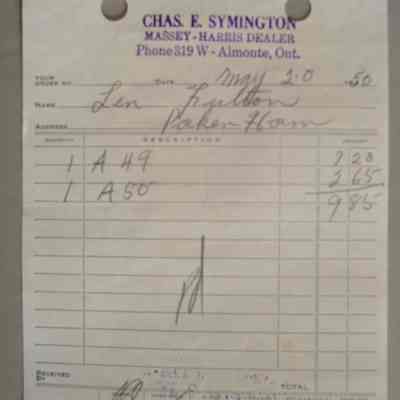 CHAS. E. SYMINGTON
MASSEY-HARRIS DEALER
Phone 319 W - Almonte, Ont.
YOUR ORDER NO. DATE May 20 50
NAME Len Fulton
ADDRESS Pakenham
QUANTITY DESCRIPTION AMOUNT
1 A 49 7 20
1 A 50 2 65
9 85
Pd
RECEIVED BY
TOTAL